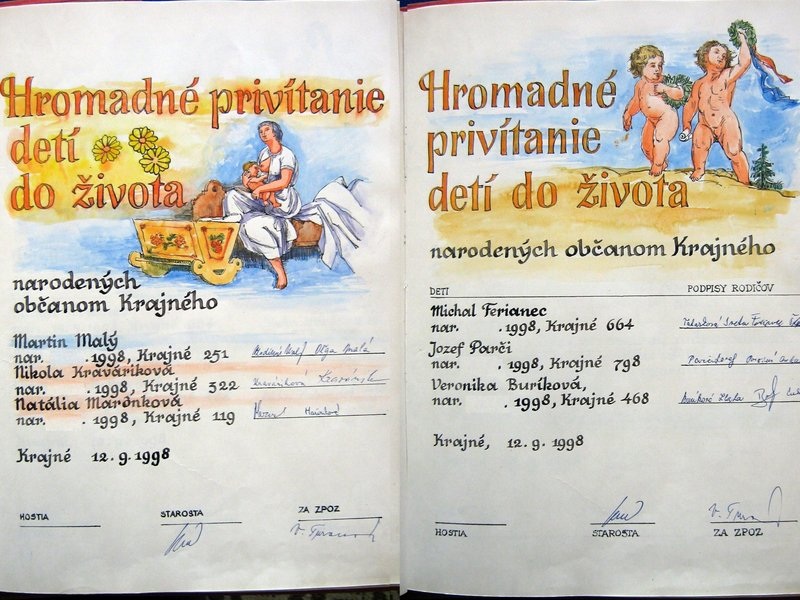 Hromadné privítanie
detí
do života
narodených
občanom Krajného
Martin Malý
nar. . 1998, Krajné 251
Nikola Kraváriková
nar. . 1998, Krajné 322
Natália Marónková
nar. . 1998, Krajné 119
Krajné 12. 9. 1998
HOSTIA
STAROSTA
ZA ZPOZ
Hromadné
privítanie
detí do života
narodených občanom Krajného
DETI PODPISY RODIČOV
Michal Ferianec
nar. . 1998, Krajné 664
Jozef Parči
nar. . 1998, Krajné 798
Veronika Buríková,
nar. . 1998, Krajné 468
Krajné, 12. 9. 1998
HOSTIA
STAROSTA
ZA ZPOZ